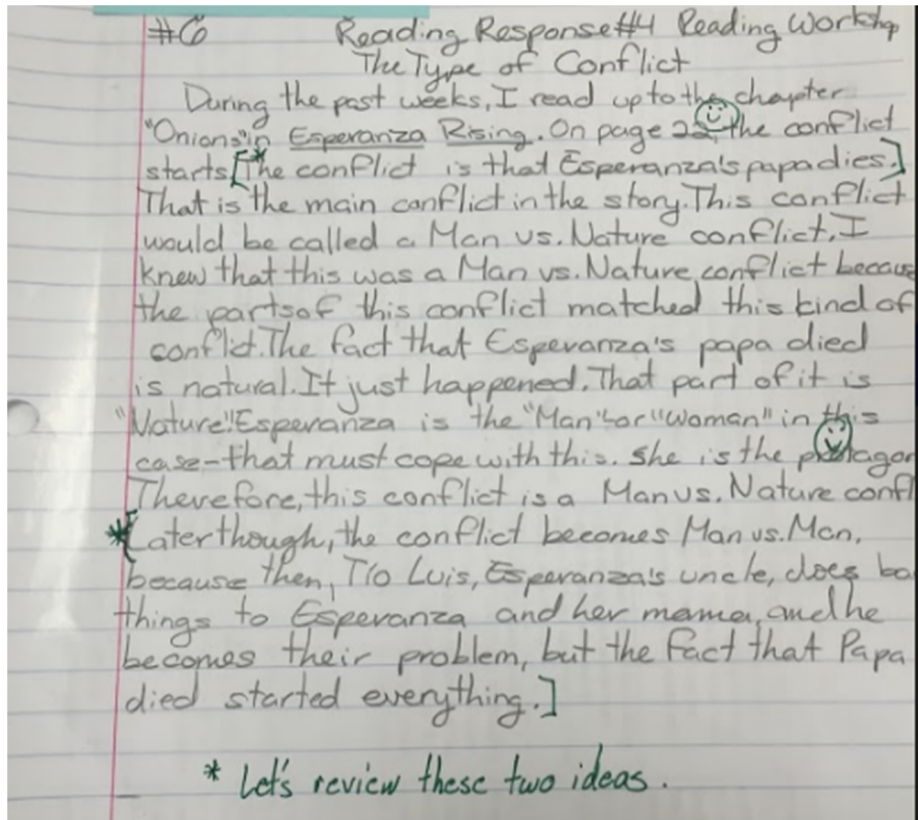 #6 Reading Response #4 Reading Workshop
The Type of Conflict
During the past weeks, I read up to the chapter
"Onions" in Esperanza Rising. On page 22, the conflict
starts [The conflict is that Esperanza's papa dies.]
That is the main conflict in the story. This conflict
would be called a Man vs. Nature conflict. I
knew that this was a Man vs. Nature conflict becaus
the parts of this conflict matched this kind of
conflict. The fact that Esperanza's papa died
is natural. It just happened. That part of it is
"Nature." Esperanza is the "Man" or "woman" in this
case - that must cope with this. She is the protagon
Therefore, this conflict is a Man vs. Nature confl
*[Later though, the conflict becomes Man vs. Man,
because then, Tío Luis, Esperanza's uncle, does ba
things to Esperanza and her mama, and he
becomes their problem, but the fact that Papa
died started everything.]
* Let's review these two ideas.